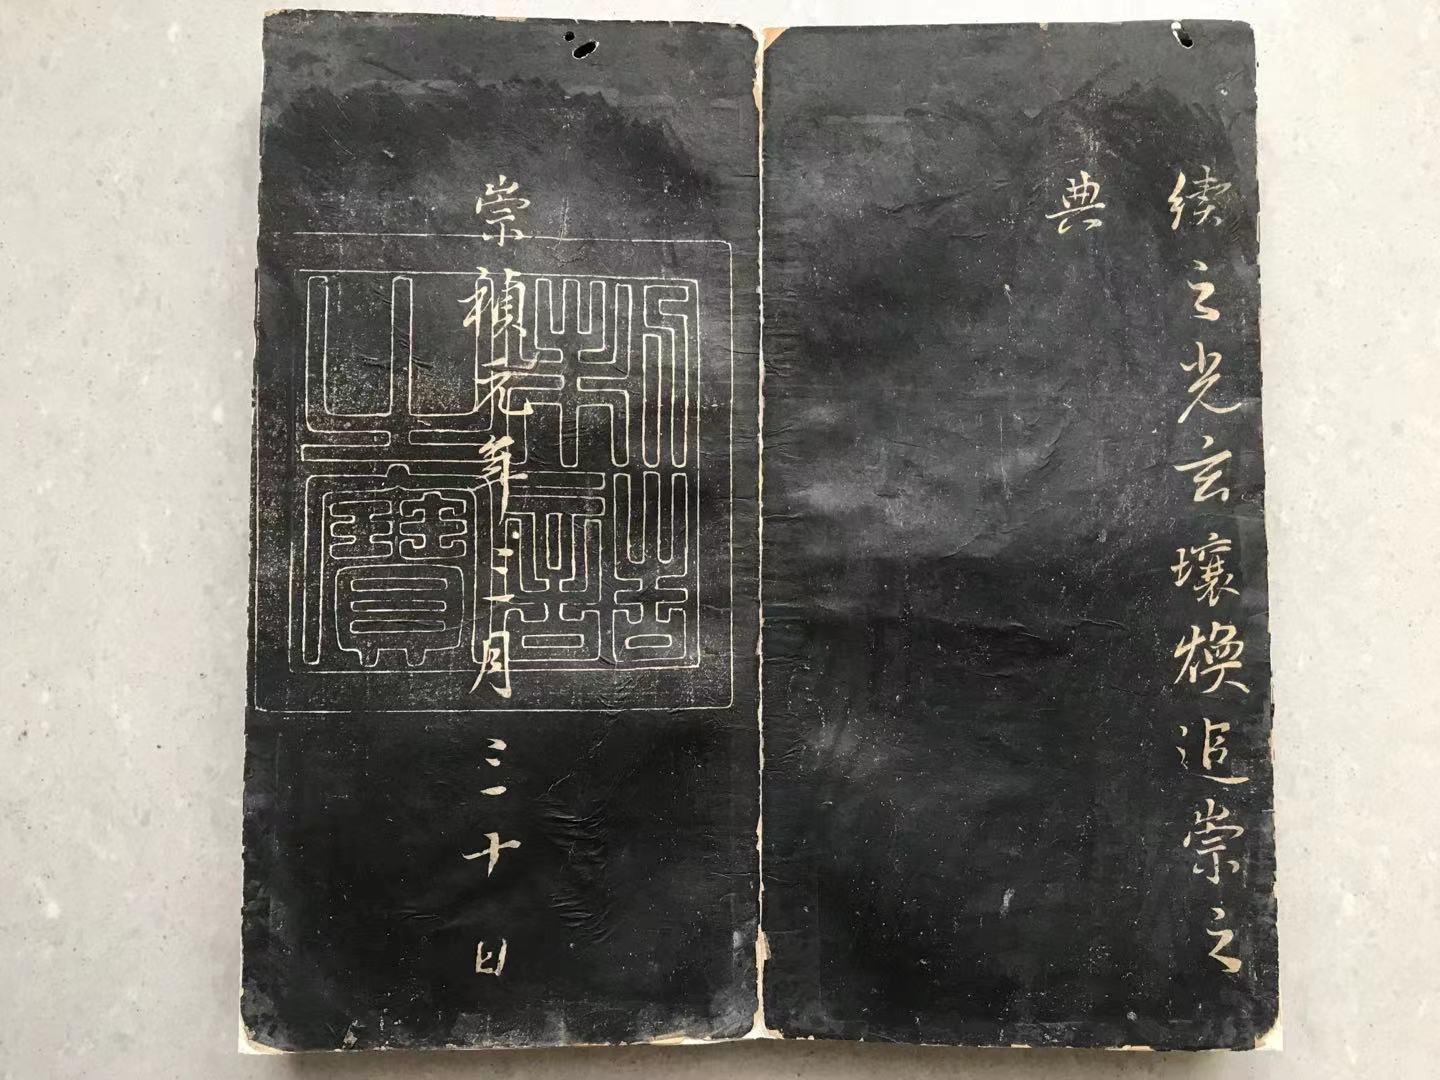 續之光玄壤煥追崇之
典
崇禎元年三月
三十日
制誥之寶